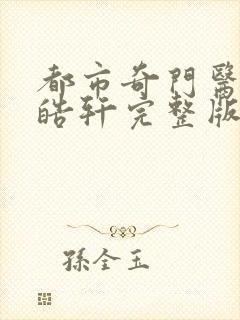 都市奇門醫
皓軒完整版
孫全玉